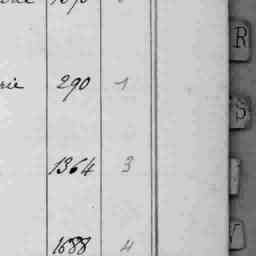 rie 290 1
1364 3
1688 4
R
S
V